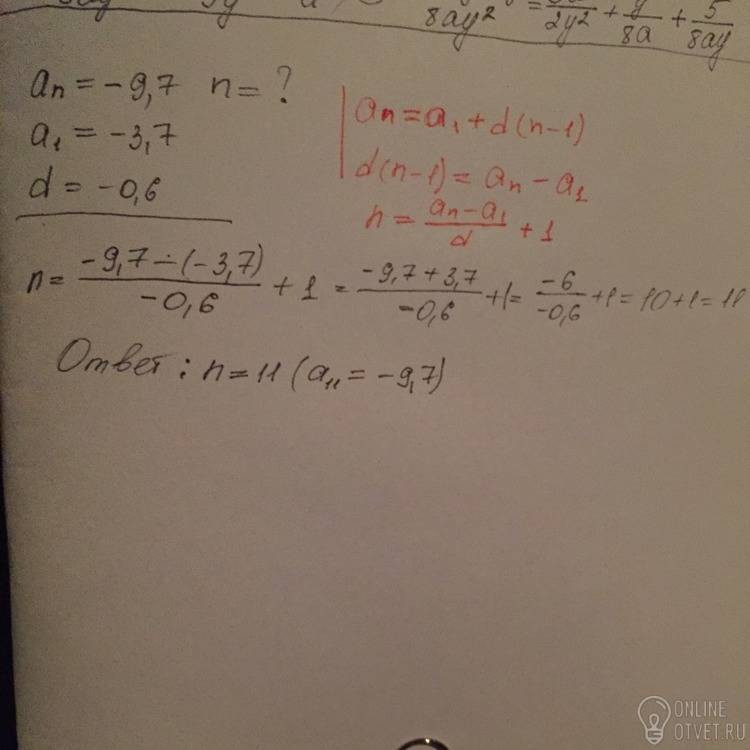 8ay² = /2y² + y/8a + 5/8ay
aₙ = -9,7 n = ?
a₁ = -3,7
d = -0,6
aₙ = a₁ + d(n-1)
d(n-1) = aₙ - a₁
n = (aₙ - a₁)/d + 1
n = (-9,7 - (-3,7))/(-0,6) + 1 = (-9,7 + 3,7)/(-0,6) + 1 = -6/-0,6 + 1 = 10 + 1 = 11
Ответ : n = 11 (a₁₁ = -9,7)
ONLINE
OTVET.RU